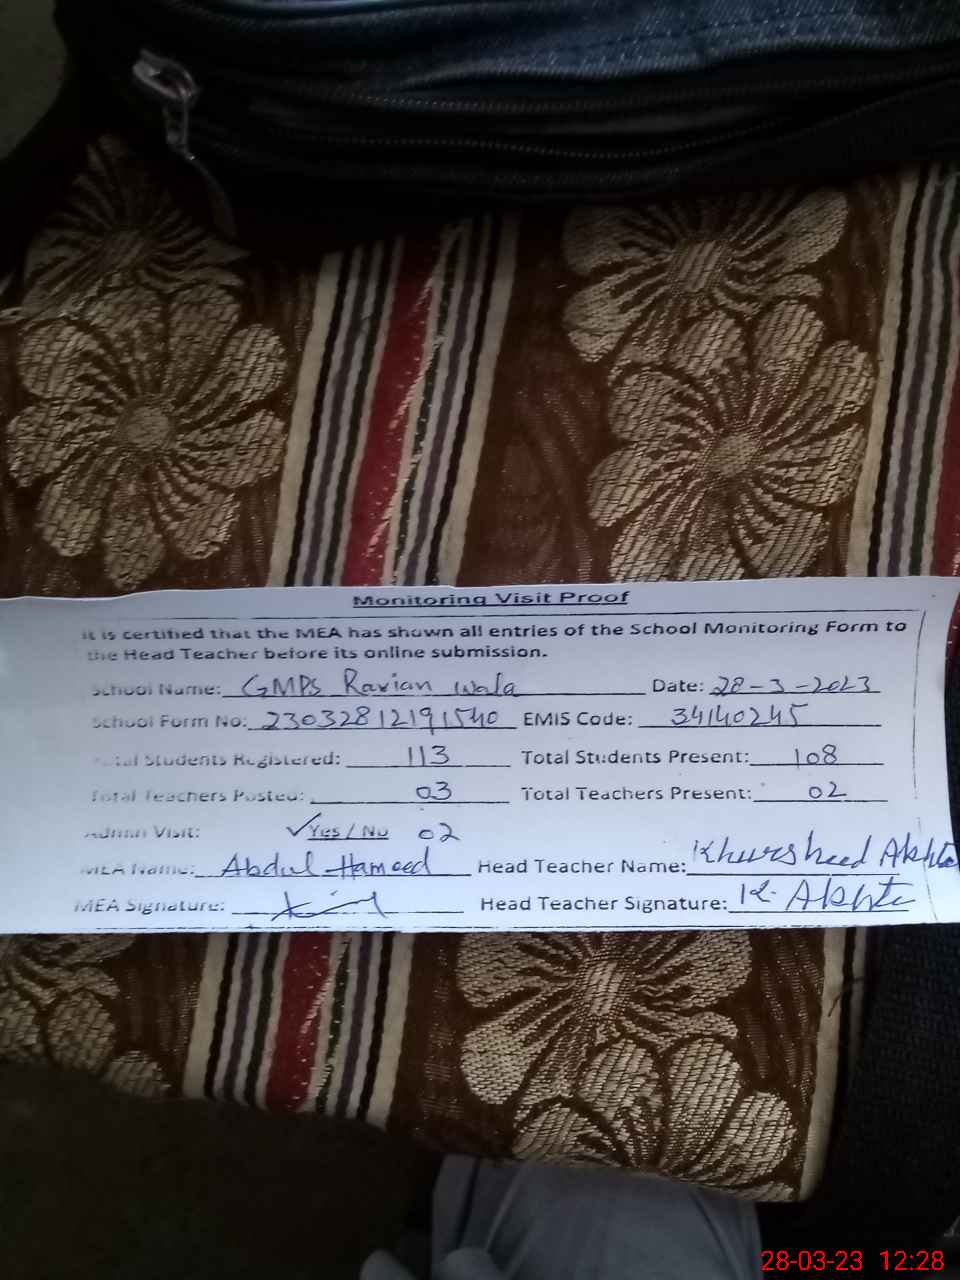 Monitoring Visit Proof
It is certified that the MEA has shown all entries of the School Monitoring Form to
the Head Teacher before its online submission.
School Name: GMPS Ravian wala Date: 28-3-2023
School Form No: 23032812191540 EMIS Code: 34140245
Total Students Registered: 113 Total Students Present: 108
Total Teachers Posted: 03 Total Teachers Present: 02
Admin Visit: ✓Yes / No 02
MEA Name: Abdul Hameed Head Teacher Name: Khursheed Akhte
MEA Signature: Head Teacher Signature: K. Akhte
28-03-23 12:28